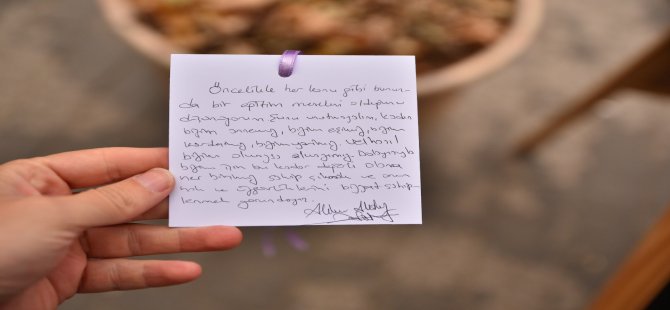 Öncelikle her konu gibi bunun-
da bir eğitim meselesi olduğunu
düşünüyorum. Şunu unutmayalım, kadın
bizim annemiz, bizim eşimiz, bizim
kardeşimiz, bizim yarımız velhasıl
bizim olmazsa olmazımız. Dolayısıyla
bizim için bu kadar değerli olana
her birimiz sahip çıkmalı ve onun
hak ve özgürlüklerini bizzat sahip-
lenmek zorundayız.